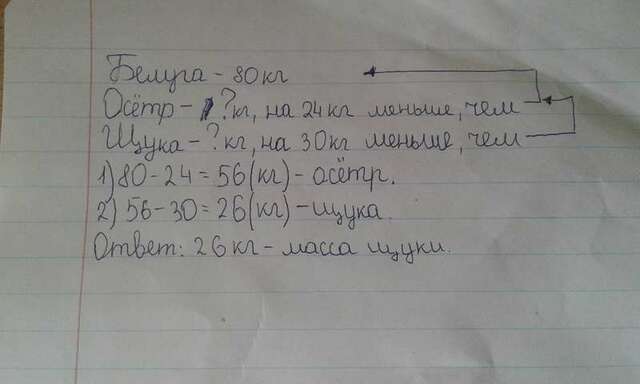 Белуга - 80 кг
Осётр - ? кг, на 24 кг меньше, чем
Щука - ? кг, на 30 кг меньше, чем
1) 80 - 24 = 56 (кг) - осётр.
2) 56 - 30 = 26 (кг) - щука.
Ответ: 26 кг - масса щуки.